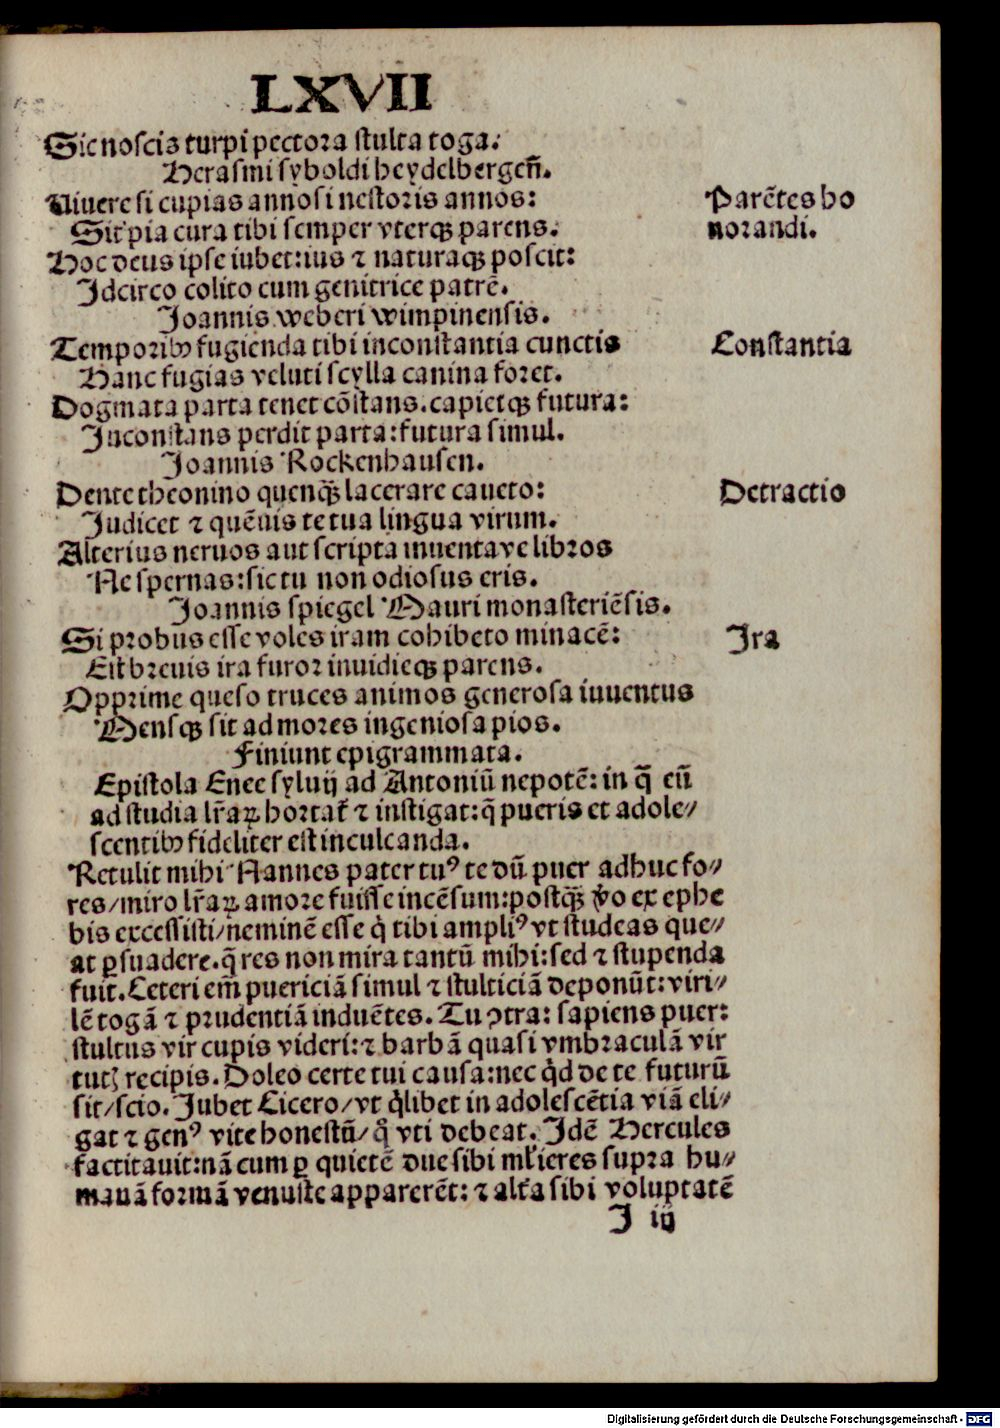 LXVII
Sic noscis turpi pectora stulta toga.
Herasmi syboldi heydelbergeñ.
Uiuere si cupias annosi nestoris annos:
Parētes ho
Sit pia cura tibi semper vterqȝ parens.
norandi.
Hoc deus ipse iubet: ius ⁊ naturaqȝ poscit:
Idcirco colito cum genitrice patrē.
Joannis weberi wimpinensis.
Temporibꝰ fugienda tibi inconstantia cunctis
Constantia
Hanc fugias veluti scylla canina foret.
Dogmata parta tenet cōstans. capietqȝ futura:
Inconstans perdit parta: futura simul.
Joannis Rockenhausen.
Dente theonino quenqȝ̄ lacerare caueto:
Detractio
Judicet ⁊ quēuis te tua lingua virum.
Alterius neruos aut scripta inuentave libros
Ne spernas: sic tu non odiosus eris.
Joannis spiegel Mauri monasteriēsis.
Si probus esse voles iram cohibeto minacē:
Ira
Est breuis ira furor inuidieqȝ parens.
Opprime queso truces animos generosa iuuentus
Mensqȝ sit ad mores ingeniosa pios.
Finiunt epigrammata.
Epistola Enee syluij ad Antoniū nepotē: in q̄ eū
ad studia lr̄aꝝ hortat᷑ ⁊ instigat: q̄ pueris et adole⸗
scentibꝰ fideliter est inculcanda.
Retulit mihi Nannes pater tuꝰ te dū puer adhuc fo⸗
res/ miro lr̄aꝝ amore fuisse incēsum: postqȝ̄ v̓o ex ephe
bis excessisti/ neminē esse q̇ tibi ampliꝰ vt studeas que⸗
at ꝑsuadere. q̄ res non mira tantū mihi: sed ⁊ stupenda
fuit. Ceteri em̄ puericiā simul ⁊ stulticiā deponūt: viri⸗
lē togā ⁊ prudentiā induētes. Tu ↄtra: sapiens puer:
stultus vir cupis videri: ⁊ barbā quasi vmbraculā vir
tutꝭ recipis. Doleo certe tui causa: nec q̇d de te futurū
sit/ scio. Jubet Cicero/ vt q̇libet in adolescētia viā eli⸗
gat ⁊ genꝰ vite honestū/ q̇ vti debeat. Idē Hercules
factitauit: nā cum ꝑ quietē due sibi ml̓ieres supra hu⸗
manā formā venuste apparerēt: ⁊ alt̓a sibi voluptatē
I iij
Digitalisierung gefördert durch die Deutsche Forschungsgemeinschaft - DFG